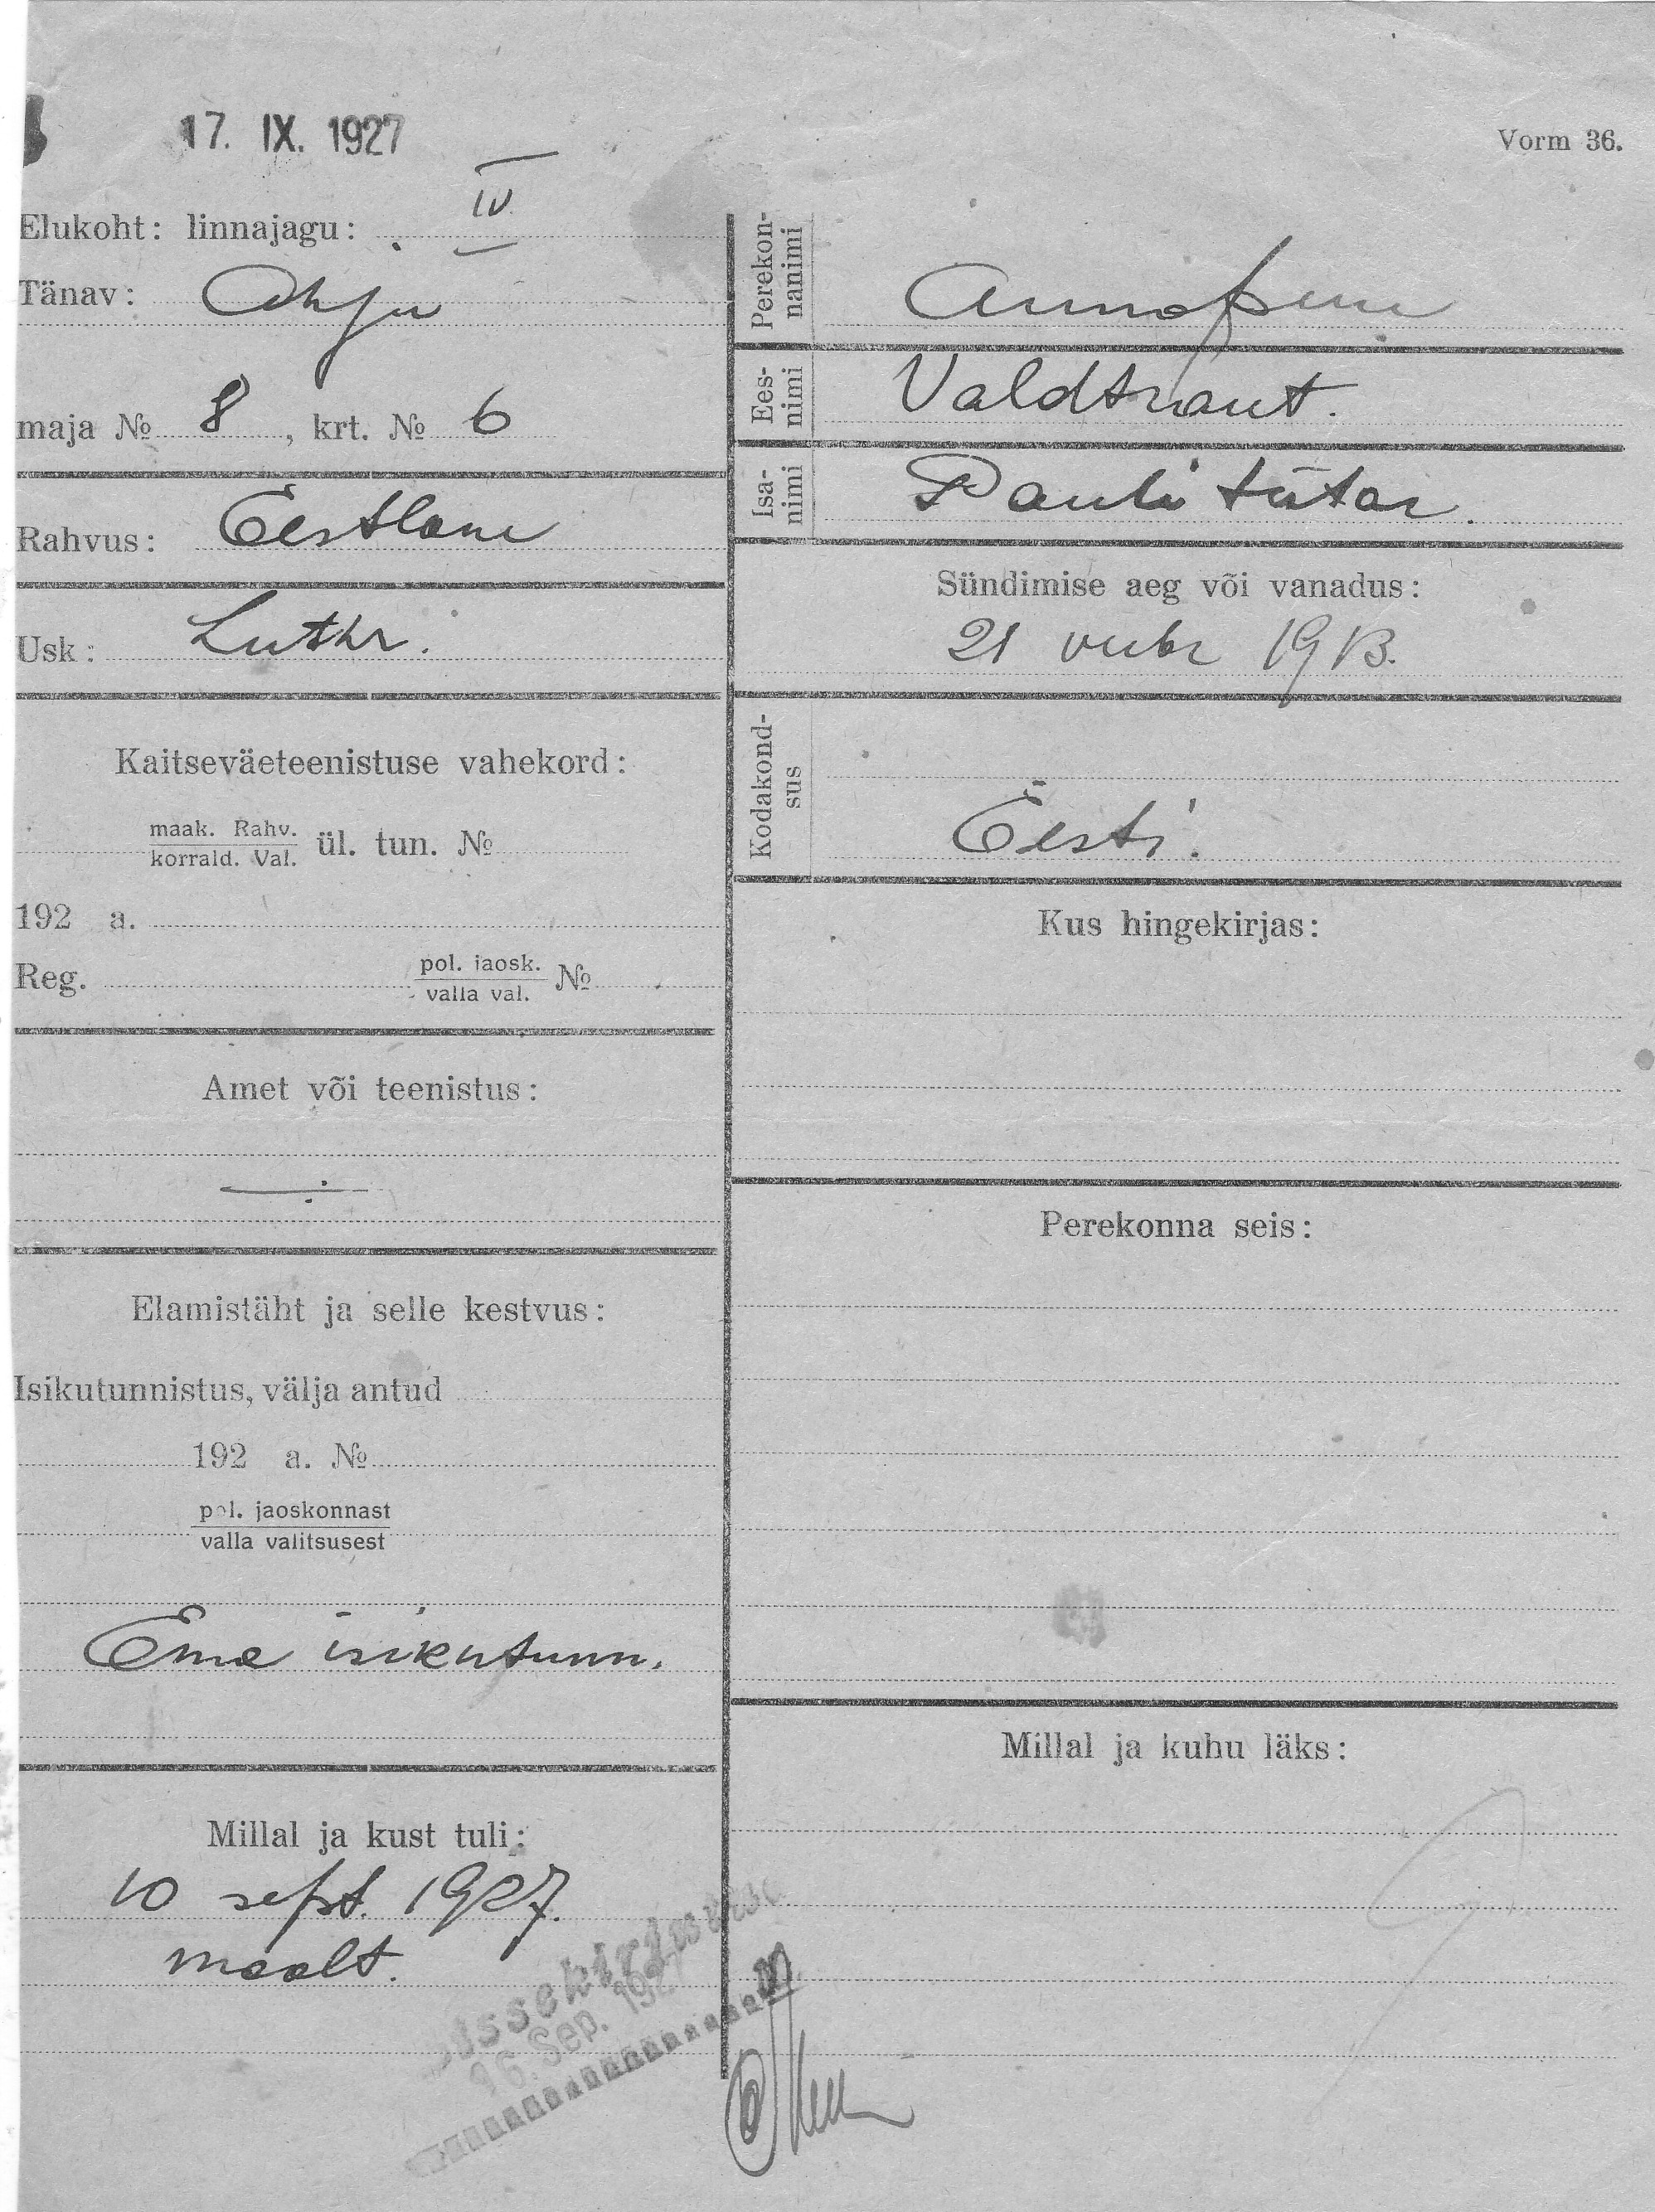 17. IX. 1927
Vorm 36.
Elukoht: linnajagu: IV
Tänav: Ahju
maja № 8, krt. № 6
Rahvus: Eestlane
Usk: Luthr.
Kaitseväeteenistuse vahekord:
maak. Rahv.
korrald. Val. ül. tun. №
192 a.
Reg. pol. jaosk.
valla val. №
Amet või teenistus:
Elamistäht ja selle kestvus:
Isikutunnistus, välja antud
192 a. №
pol. jaoskonnast
valla valitsusest
Ema isikutunn.
Millal ja kust tuli:
10 sept. 1927.
maalt.
Sissekirjutatud
16. Sep. 1927
Perekon-
nanimi
Ees-
nimi Valdtraut.
Isa-
nimi Pauli tütar.
Sündimise aeg või vanadus:
21 1913.
Kodakond-
sus Eesti.
Kus hingekirjas:
Perekonna seis:
Millal ja kuhu läks: